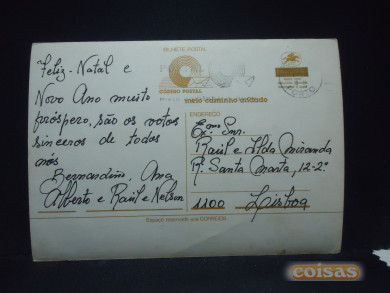 BILHETE POSTAL
CÓDIGO POSTAL
meio caminho andado
Feliz-Natal e
Novo Ano muito
próspero, são os votos
sinceros de todos
nós
Bernardino, Ana
Alberto e Raúl e Nelson
ENDEREÇO
Exmº. Snr.
Raúl e Ilda Miranda
R. Santa Marta, 12-2º
1100 Lisboa
Espaço reservado aos CORREIOS
coisas